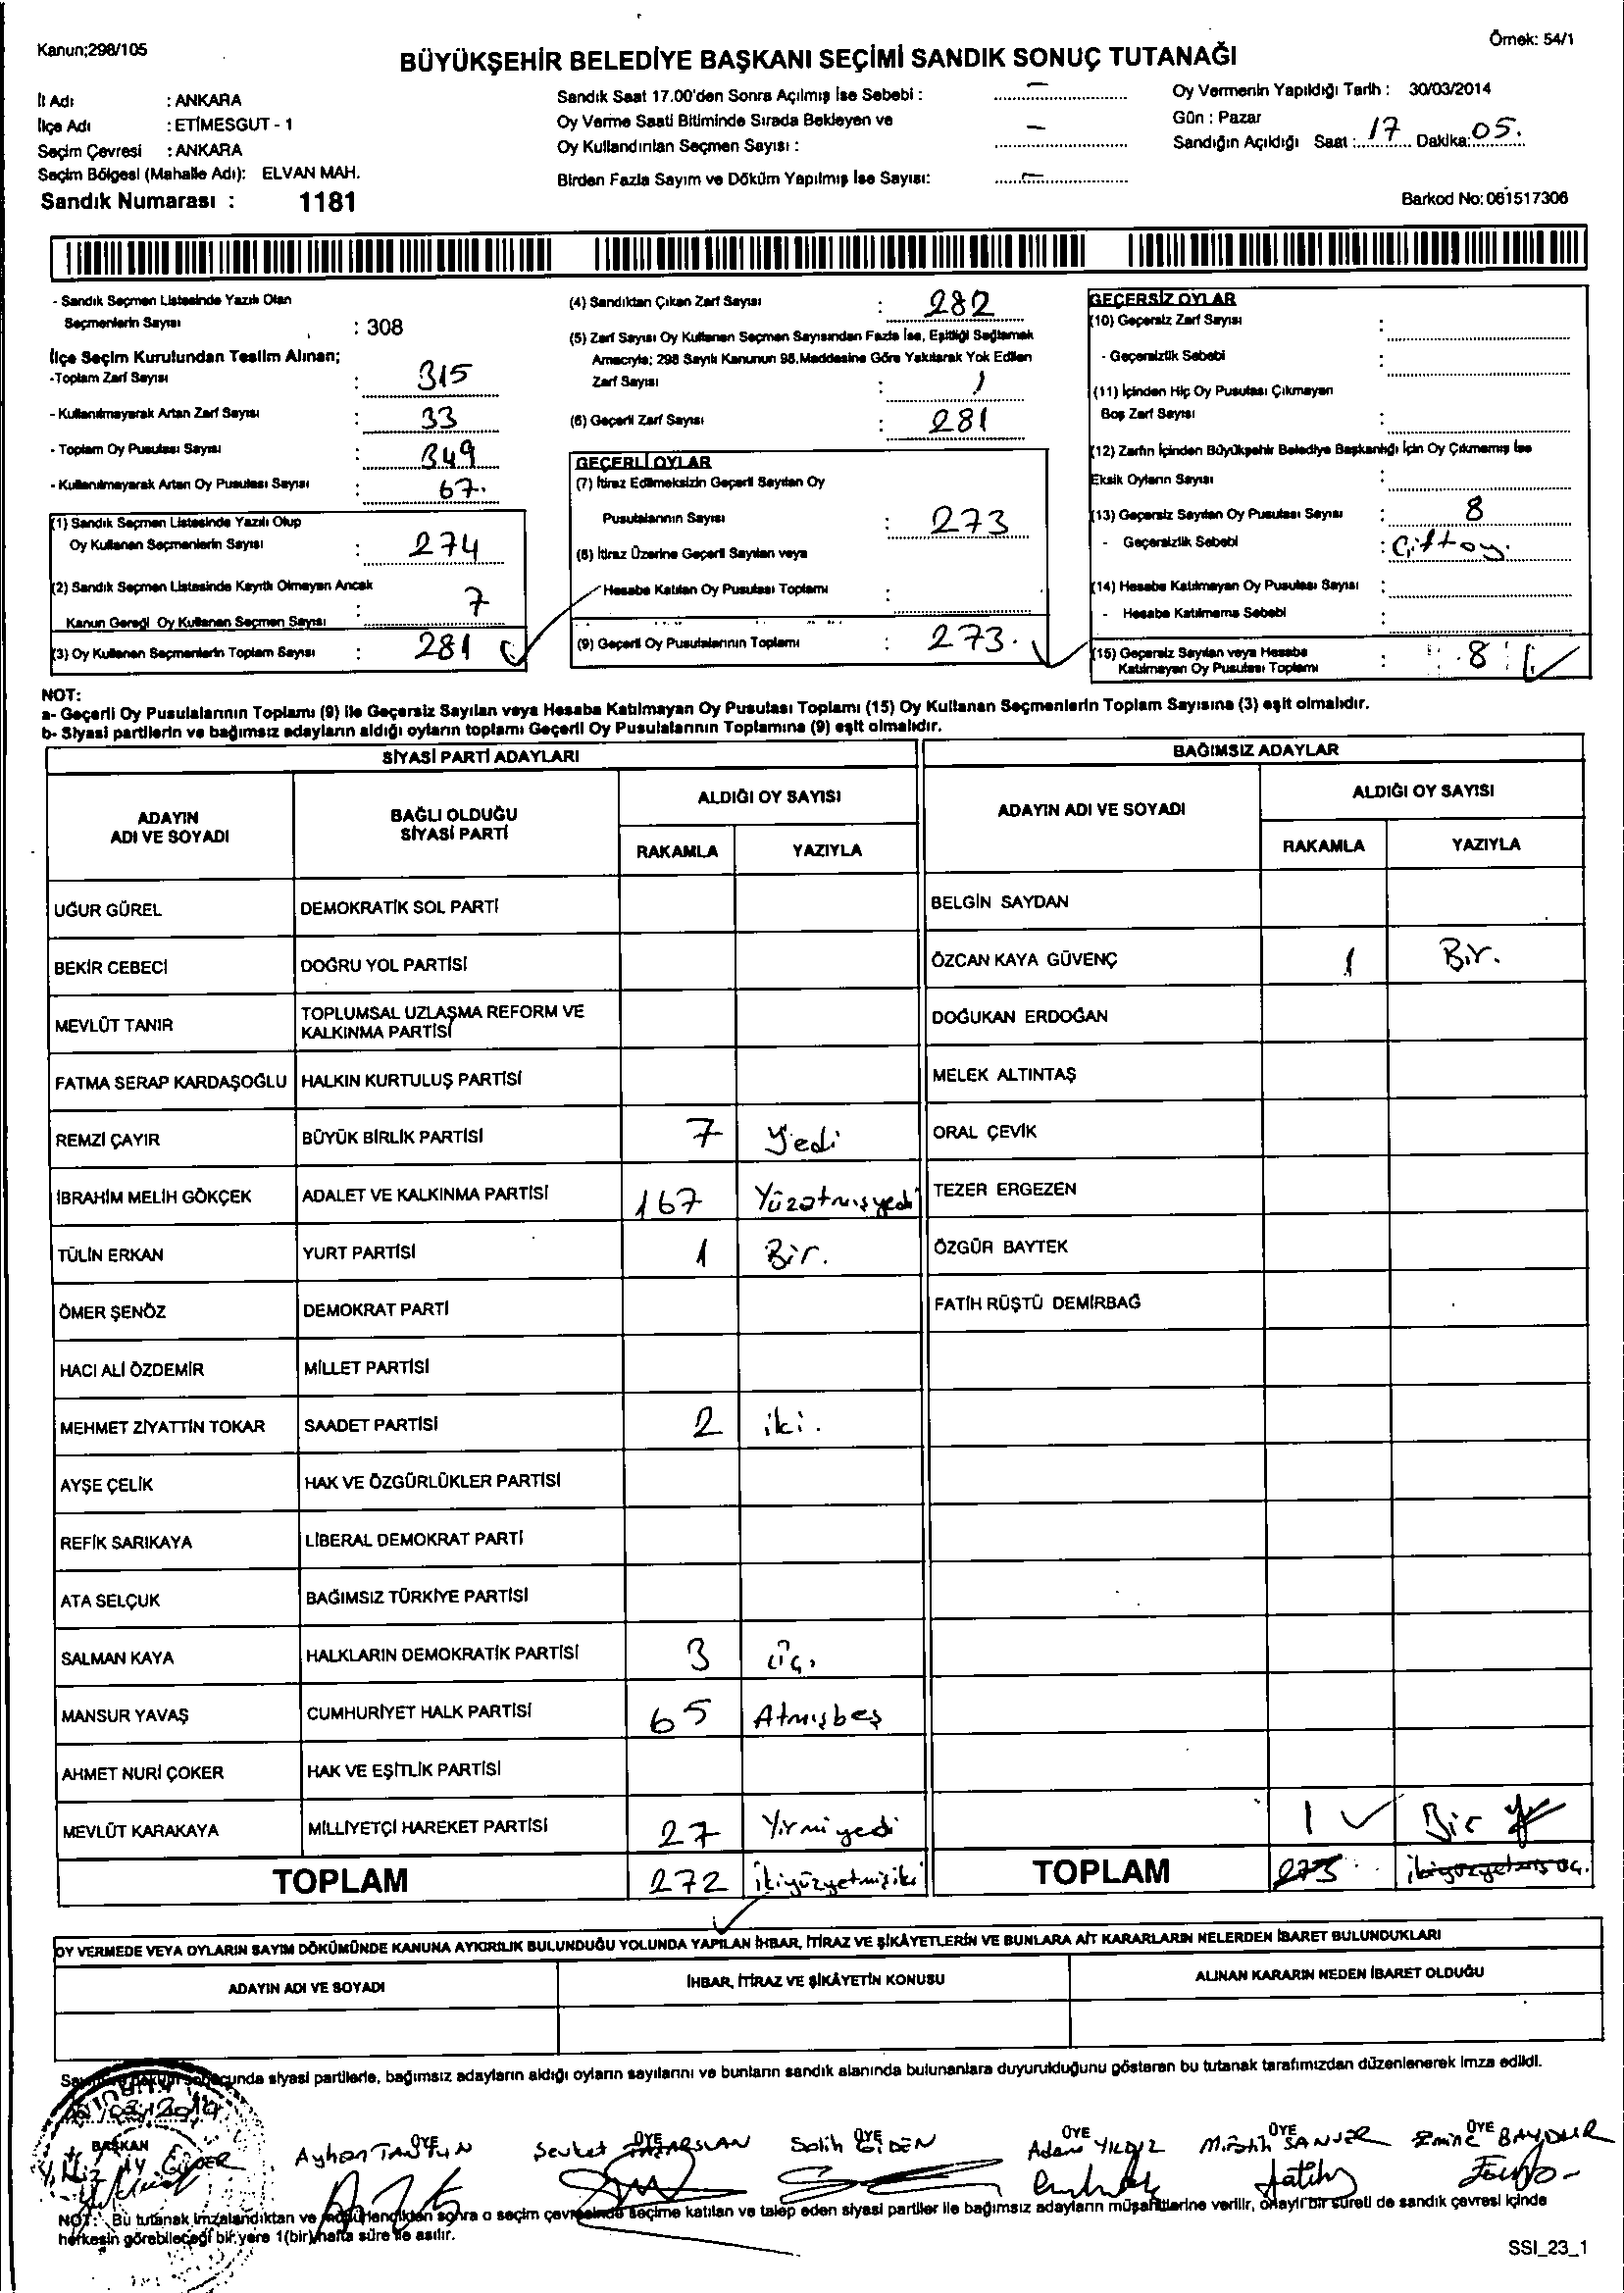 Kanun;298/105
Örnek: 54/1
BÜYÜKŞEHİR BELEDİYE BAŞKANI SEÇİMİ SANDIK SONUÇ TUTANAĞI
İl Adı : ANKARA
İlçe Adı : ETİMESGUT - 1
Seçim Çevresi : ANKARA
Seçim Bölgesi (Mahalle Adı): ELVAN MAH.
Sandık Numarası : 1181
Sandık Saat 17.00'den Sonra Açılmış İse Sebebi : —
Oy Verme Saati Bitiminde Sırada Bekleyen ve
Oy Kullandırılan Seçmen Sayısı : —
Birden Fazla Sayım ve Döküm Yapılmış İse Sayısı: —
Oy Vermenin Yapıldığı Tarih : 30/03/2014
Gün : Pazar
Sandığın Açıldığı Saat : 17 Dakika: 05.
Barkod No: 061517306
- Sandık Seçmen Listesinde Yazılı Olan
Seçmenlerin Sayısı : 308
İlçe Seçim Kurulundan Teslim Alınan;
-Toplam Zarf Sayısı : 315
- Kullanılmayarak Artan Zarf Sayısı : 33
- Toplam Oy Pusulası Sayısı : 349
- Kullanılmayarak Artan Oy Pusulası Sayısı : 67.
(1) Sandık Seçmen Listesinde Yazılı Olup
Oy Kullanan Seçmenlerin Sayısı : 274
(2) Sandık Seçmen Listesinde Kayıtlı Olmayan Ancak
Kanun Gereği Oy Kullanan Seçmen Sayısı : 7
(3) Oy Kullanan Seçmenlerin Toplam Sayısı : 281
(4) Sandıktan Çıkan Zarf Sayısı : 282
(5) Zarf Sayısı Oy Kullanan Seçmen Sayısından Fazla İse, Eşitliği Sağlamak
Amacıyla; 298 Sayılı Kanunun 98.Maddesine Göre Yakılarak Yok Edilen
Zarf Sayısı : 1
(6) Geçerli Zarf Sayısı : 281
GEÇERLİ OYLAR
(7) İtiraz Edilmeksizin Geçerli Sayılan Oy
Pusulalarının Sayısı : 273
(8) İtiraz Üzerine Geçerli Sayılan veya
Hesaba Katılan Oy Pusulası Toplamı :
(9) Geçerli Oy Pusulalarının Toplamı : 273.
GEÇERSİZ OYLAR
(10) Geçersiz Zarf Sayısı :
- Geçersizlik Sebebi :
(11) İçinden Hiç Oy Pusulası Çıkmayan
Boş Zarf Sayısı :
(12) Zarfın İçinden Büyükşehir Belediye Başkanlığı İçin Oy Çıkmamış İse
Eksik Oyların Sayısı :
(13) Geçersiz Sayılan Oy Pusulası Sayısı : 8
- Geçersizlik Sebebi : Çift oy.
(14) Hesaba Katılmayan Oy Pusulası Sayısı :
- Hesaba Katılmama Sebebi :
(15) Geçersiz Sayılan veya Hesaba
Katılmayan Oy Pusulası Toplamı : 8
NOT:
a- Geçerli Oy Pusulalarının Toplamı (9) ile Geçersiz Sayılan veya Hesaba Katılmayan Oy Pusulası Toplamı (15) Oy Kullanan Seçmenlerin Toplam Sayısına (3) eşit olmalıdır.
b- Siyasi partilerin ve bağımsız adayların aldığı oyların toplamı Geçerli Oy Pusulalarının Toplamına (9) eşit olmalıdır.
SİYASİ PARTİ ADAYLARI
ADAYIN ADI VE SOYADI
BAĞLI OLDUĞU SİYASİ PARTİ
ALDIĞI OY SAYISI
RAKAMLA YAZIYLA
UĞUR GÜREL DEMOKRATİK SOL PARTİ
BEKİR CEBECİ DOĞRU YOL PARTİSİ
MEVLÜT TANIR TOPLUMSAL UZLAŞMA REFORM VE KALKINMA PARTİSİ
FATMA SERAP KARDAŞOĞLU HALKIN KURTULUŞ PARTİSİ
REMZİ ÇAYIR BÜYÜK BİRLİK PARTİSİ 7 Yedi
İBRAHİM MELİH GÖKÇEK ADALET VE KALKINMA PARTİSİ 167 Yüzatmışyedi
TÜLİN ERKAN YURT PARTİSİ 1 Bir.
ÖMER ŞENÖZ DEMOKRAT PARTİ
HACI ALİ ÖZDEMİR MİLLET PARTİSİ
MEHMET ZİYATTİN TOKAR SAADET PARTİSİ 2 iki.
AYŞE ÇELİK HAK VE ÖZGÜRLÜKLER PARTİSİ
REFİK SARIKAYA LİBERAL DEMOKRAT PARTİ
ATA SELÇUK BAĞIMSIZ TÜRKİYE PARTİSİ
SALMAN KAYA HALKLARIN DEMOKRATİK PARTİSİ 3 üç.
MANSUR YAVAŞ CUMHURİYET HALK PARTİSİ 65 Atmışbeş
AHMET NURİ ÇOKER HAK VE EŞİTLİK PARTİSİ
MEVLÜT KARAKAYA MİLLİYETÇİ HAREKET PARTİSİ 27 Yirmiyedi
TOPLAM 272 ikiyüzyetmişiki
BAĞIMSIZ ADAYLAR
ADAYIN ADI VE SOYADI
ALDIĞI OY SAYISI
RAKAMLA YAZIYLA
BELGİN SAYDAN
ÖZCAN KAYA GÜVENÇ 1 Bir.
DOĞUKAN ERDOĞAN
MELEK ALTINTAŞ
ORAL ÇEVİK
TEZER ERGEZEN
ÖZGÜR BAYTEK
FATİH RÜŞTÜ DEMİRBAĞ
1 Bir
TOPLAM 273 ikiyüzyetmişüç.
OY VERMEDE VEYA OYLARIN SAYIM DÖKÜMÜNDE KANUNA AYKIRILIK BULUNDUĞU YOLUNDA YAPILAN İHBAR, İTİRAZ VE ŞİKÂYETLERİN VE BUNLARA AİT KARARLARIN NELERDEN İBARET BULUNDUKLARI
ADAYIN ADI VE SOYADI
İHBAR, İTİRAZ VE ŞİKÂYETİN KONUSU
ALINAN KARARIN NEDEN İBARET OLDUĞU
siyasi partilerle, bağımsız adayların aldığı oyların sayılarını ve bunların sandık alanında bulunanlara duyurulduğunu gösteren bu tutanak tarafımızdan düzenlenerek imza edildi.
BAŞKAN ÜYE ÜYE ÜYE ÜYE ÜYE ÜYE
Ayhan TAŞTUN Sevket Salih GİDEN Adem YILDIZ SANVER Emine BAYDUR
NOT: Bu tutanak imzalandıktan ve mühürlendikten sonra o seçim çevresinde seçime katılan ve talep eden siyasi partiler ile bağımsız adayların müşahitlerine verilir, onaylı bir sureti de sandık çevresi içinde
herkesin görebileceği bir yere 1(bir) hafta süre ile asılır.
SSI_23_1